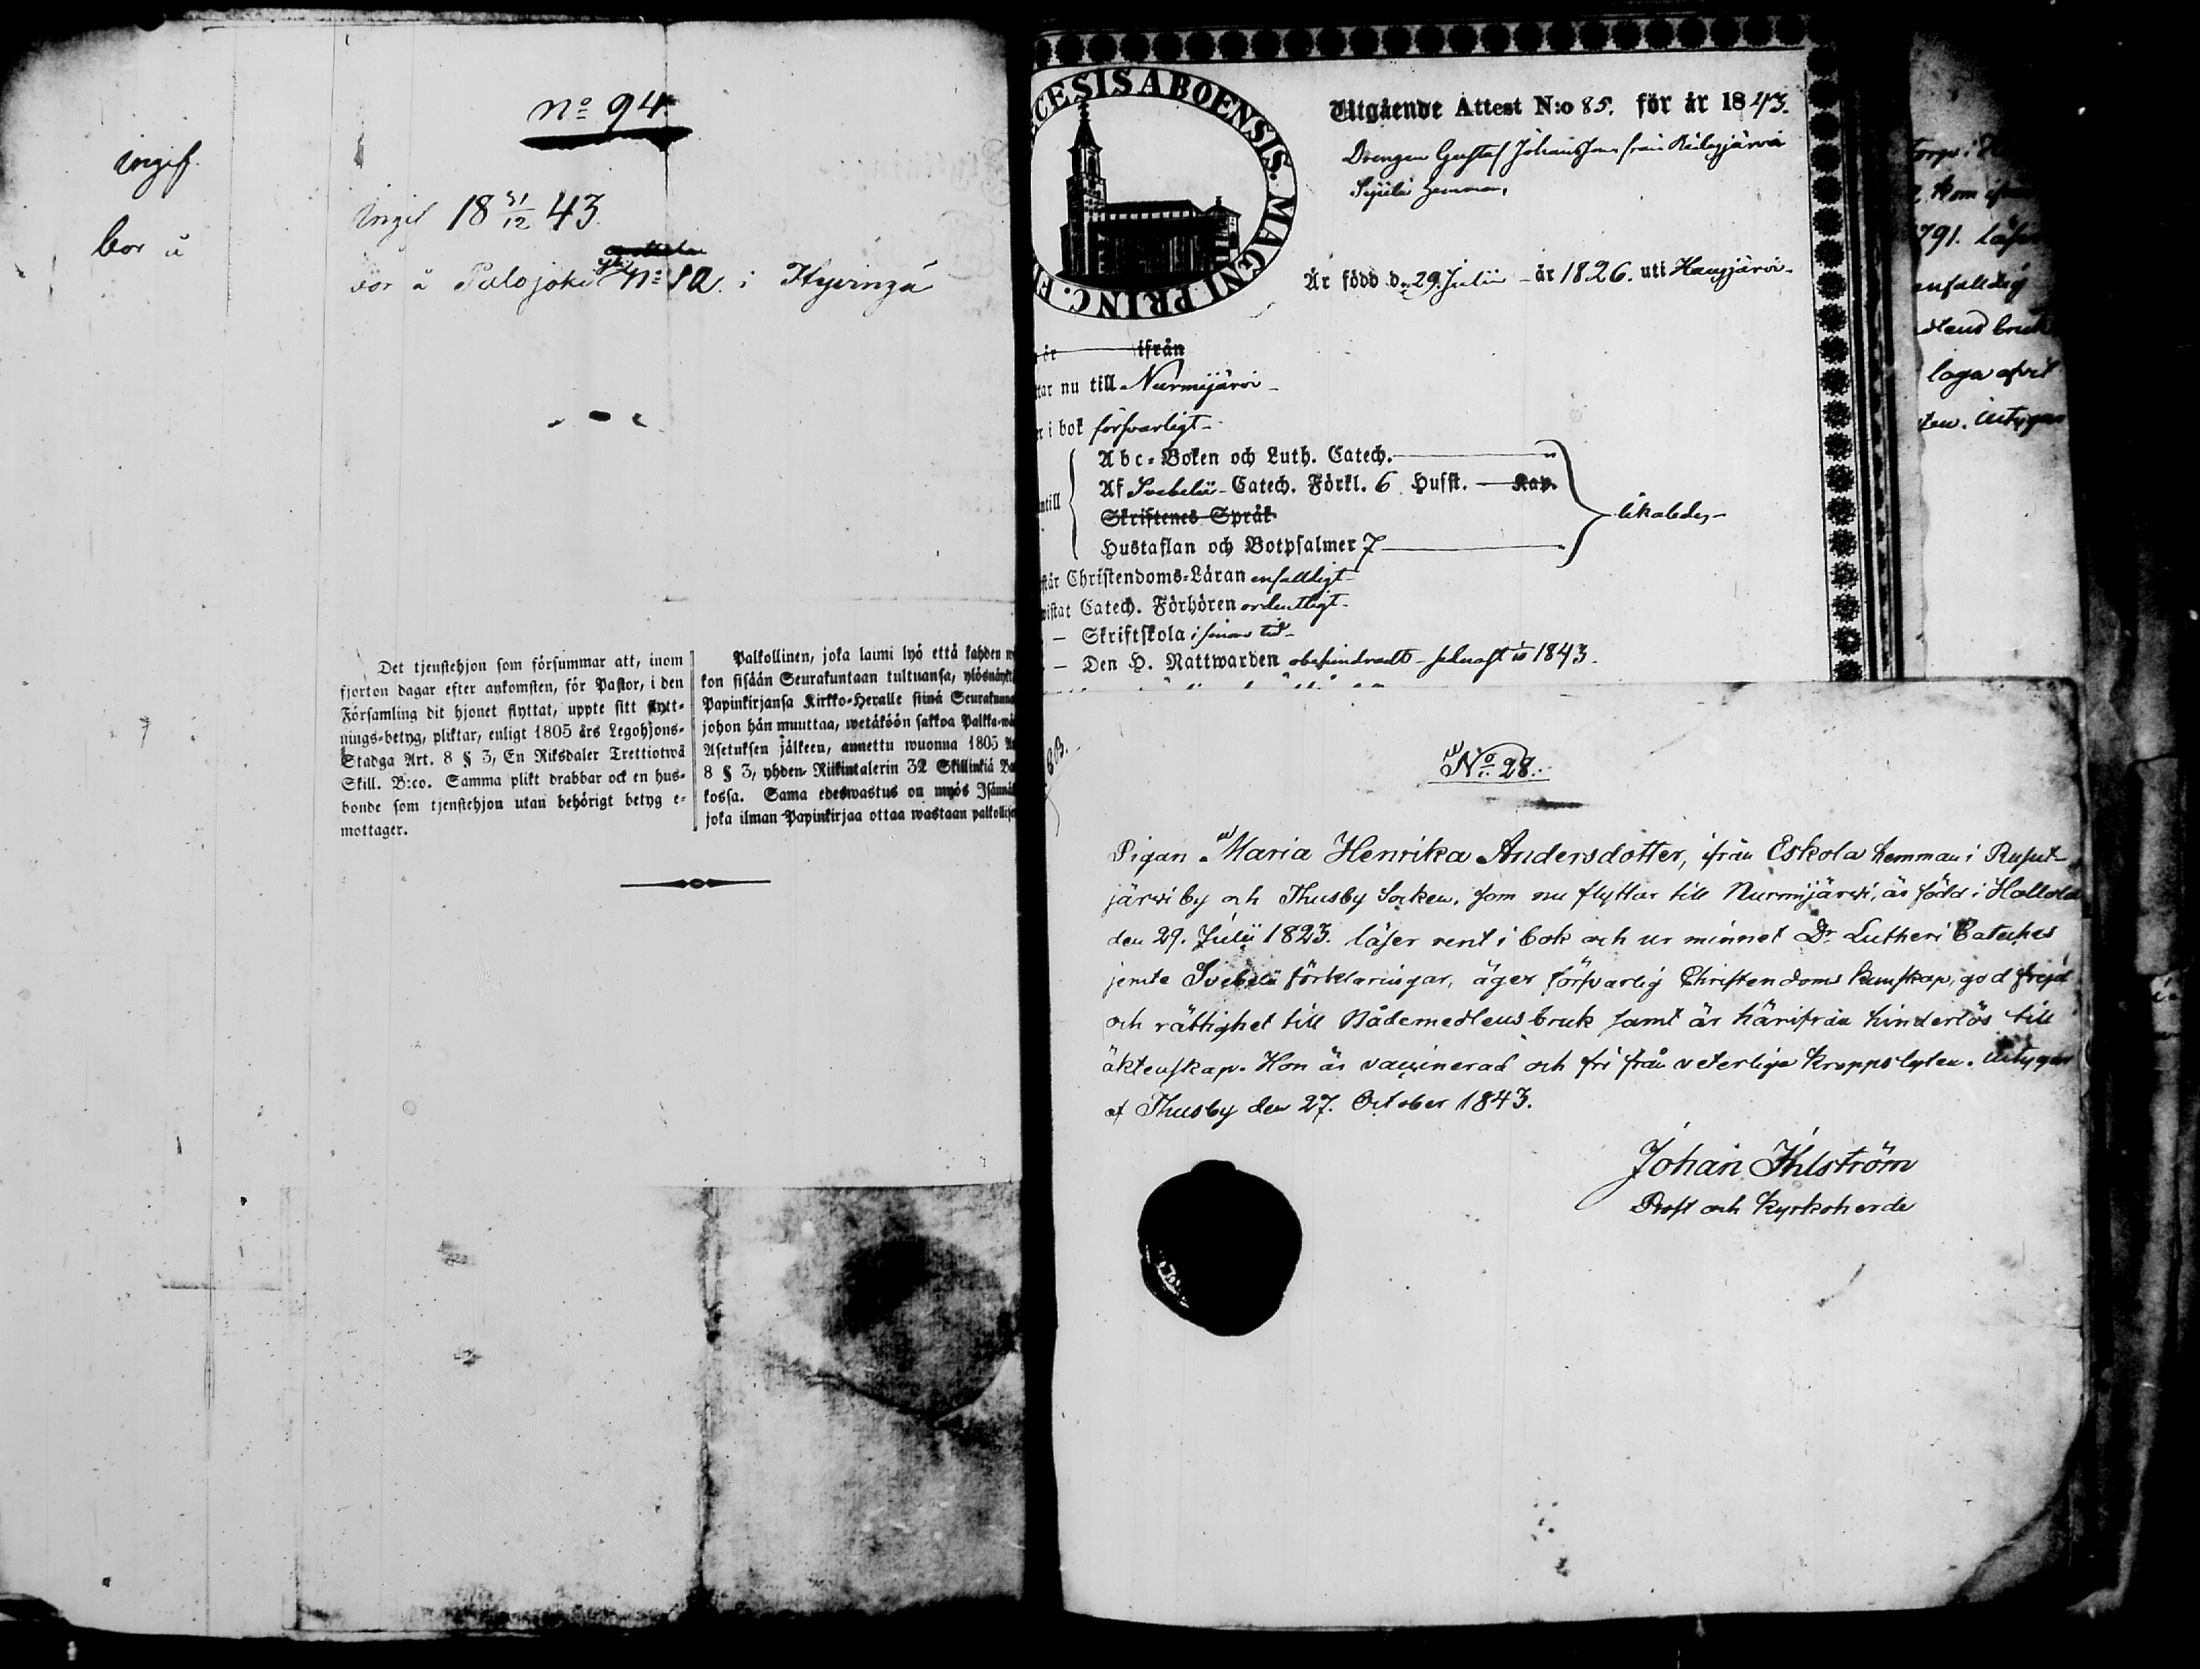 No 94.
ingif.
bor å
Ingif 18 31/12 43.
bor å Palojoki No 10. i Hyvinge
Det tjenstehjon som försummar att, inom
fjorton dagar efter ankomsten, för Pastor, i den
Församling dit hjonet flyttat, uppte sitt flytt-
nings-betyg, pliktar, enligt 1805 års Legohjons-
Stadga Art. 8 § 3, En Riksdaler Trettiotwå
Skill. B:co. Samma plikt drabbar ock en hus-
bonde som tjenstehjon utan behörigt betyg e-
mottager.
Palkollinen, joka laimi lyö että kahden
kon sisään Seurakuntaan tultuansa, ylösnäyt
Papinkirjansa Kirkko-Herralle siinä Seurakunna
johon hän muuttaa, wetäköön sakkoa Palkka-wä
Asetuksen jälkeen, annettu wuonna 1805
8 § 3, yhden Riikintalerin 32 Skillinkiä Ba
kossa. Sama edeswastus on myös Isännäl
joka ilman Papinkirjaa ottaa wastaan palkollise
CESIS ABOENSIS. MAGNI PRINC. F
Utgående Attest N:o 85. för år 1843.
Drengen Gustaf Johansson från
hemman,
Är född d. 29. Julii - år 1826. uti Hausjärvi.
år ifrån
ttar nu till Nurmijärvi
r i bok försvarligt
ntill
Abc-Boken och Luth. Catech.
Af Svebelii Catech. Förkl. 6 Husst. Kap.
Skriftenes Språk
Hustaflan och Botpsalmer 7
likaledes
står Christendoms-Läran enfaldigt
wistat Catech. Förhören ordentligt.
— Skriftskola i sinom tid
— Den H. Nattwarden obehindradt - senast is 1843.
Torp i
kom ifrån
1791. läser
enfaldig
dlens bruk
laga
ten. Intygar
No 28.
Pigan Maria Henrika Andersdotter, ifrån Eskola hemman i Rusut-
järwi by och Thusby Socken, som nu flyttar till Nurmijärvi, är född i Hollola
den 29. Julii 1823. läser rent i bok och ur minnet Dr Lutheri Cateches
jemte Svebelii förklaringar, äger försvarlig Christendoms kunskap, god frejd
och rättighet till Nådemedlens bruk samt är härifrån hinderlös till
äktenskap. Hon är vaccinerad och fri från veterliga kroppslyten. Intygar
af Thusby den 27. October 1843.
Johan Ihlström
Prost och Kyrkoherde